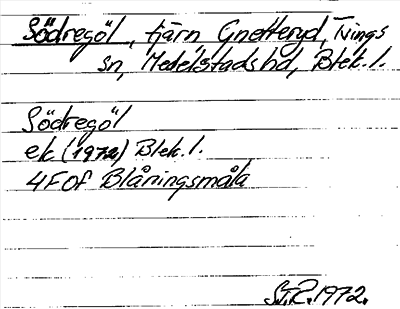 Södregöl, tjärn Gnetteryd, Tvings
sn, Medelstads hd, Blek. l.
Södregöl
ek (1972) Blek. l.
4F0f Blåningsmåla
S.T.R. 1972.